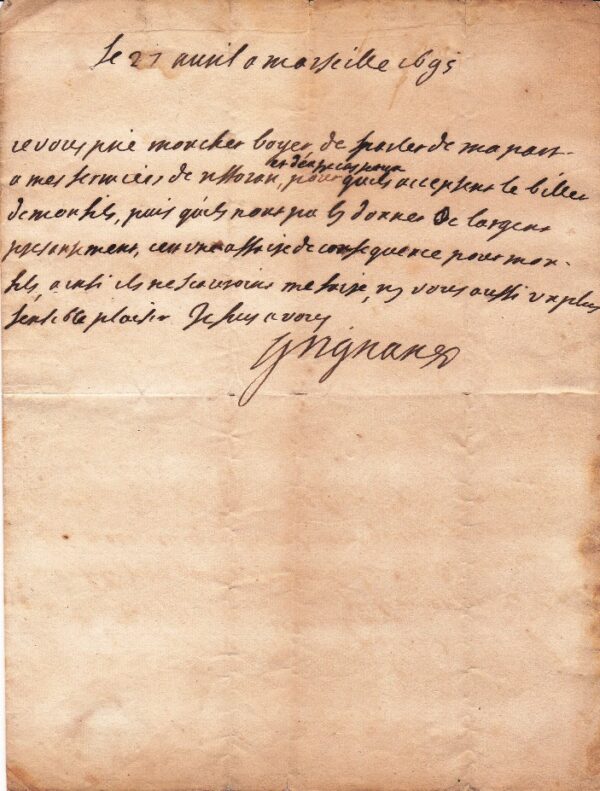 Le 27 auril a marseille 1695
ie vous prie mon cher boyer de parler de ma part
a mes fermiers de pour quils acceptent le billet
de mon fils, puis quils nont pas donner de largent
presentement, cest une affaire de consequence pour mon
fils, ainsi ils ne scauroint me faire, ny vous aussi un plus
sensible plaisir Je suis a vous
Grignan